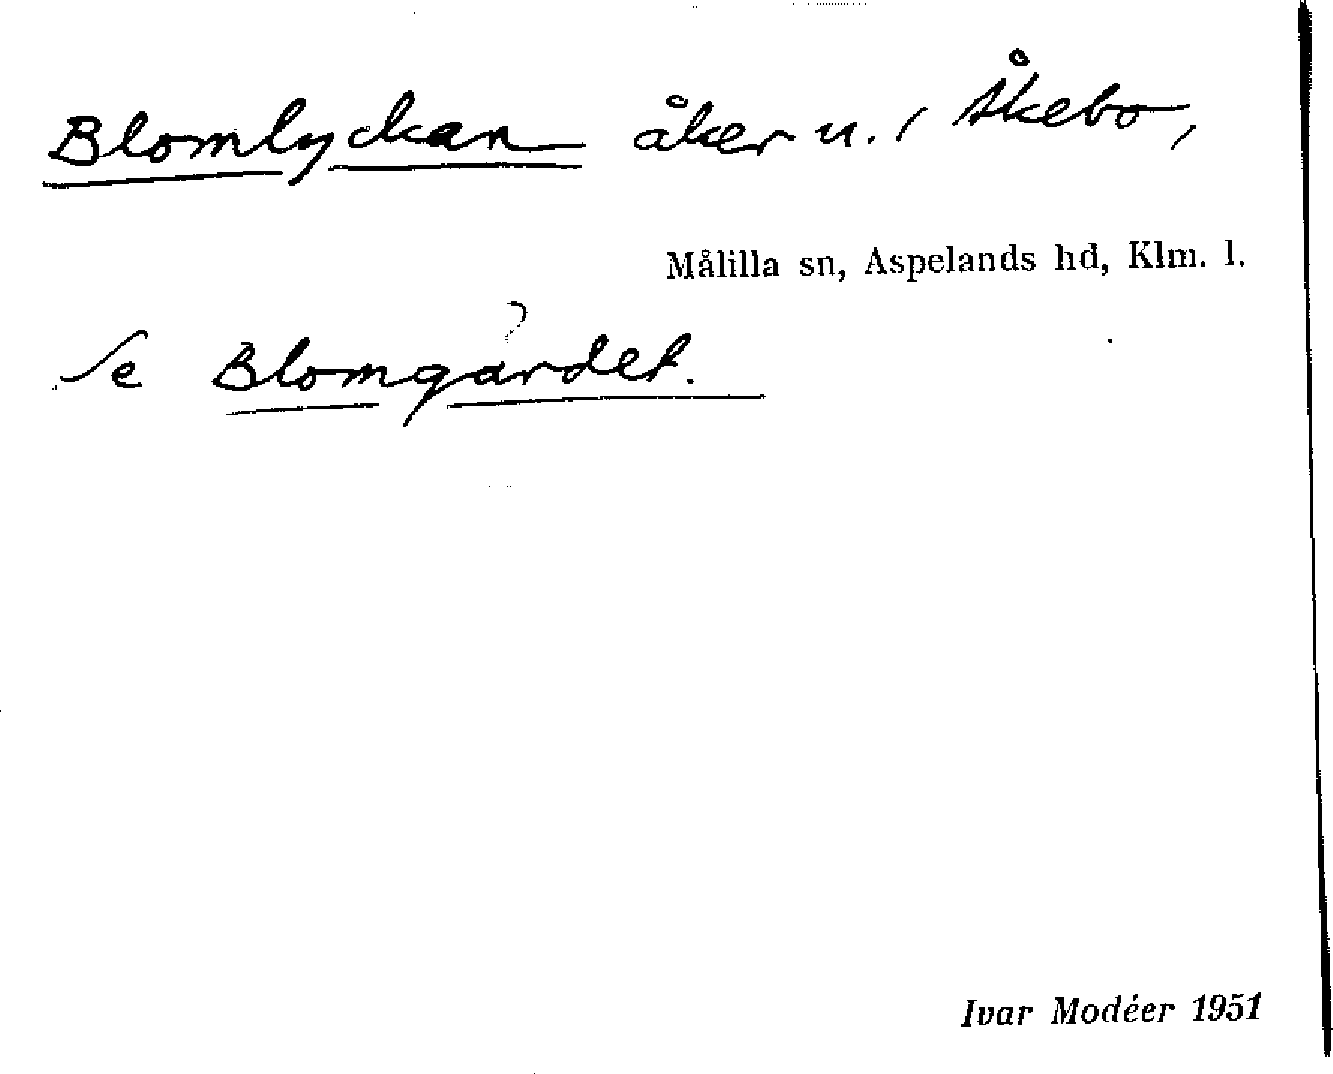 Blomlyckan åker u. / Åkebo,
Målilla sn, Aspelands hd, Klm. l.
?
Se Blomgärdet.
Ivar Modéer 1951